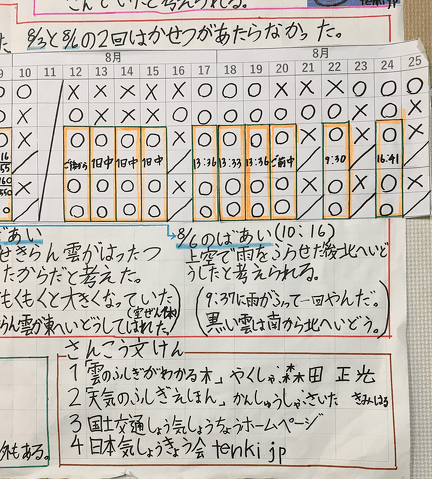 さんていたと考えられる。
tenkijp
た。8/3と8/6の2回はかせつがあたらなかった。
8月 8月
9 10 11 12 13 14 15 16 17 18 19 20 21 22 23 24 25
○ × × × × ○ ○ ○ ○ × × × ○ ○ ○
○ × × × × ○ ○ ○ ○ ○ × × ○ × ○
× ○ ○ ○ ○ × ○ ○ ○ ○ × ○ × ○ ×
1日中 1日中 1日中 13:36 13:33 13:36 ご前中 9:30 16:41
× ○ ○ ○ ○ × ○ ○ ○ ○ × ○ × ○ ×
○ ○ ○ ○ ○ ○ ○ ○ ○ ○
ばあい
せきらん雲がはったつ
たからだと考えた。
もくもくと大きくなっていた
らん雲が東へいどうしてはれた。
8/6のばあい(10:16)
上空で雨をふらせた後北へいど
うしたと考えられる。
(9:37に雨がふって一回やんだ。
黒い雲は南から北へいどう。)
さんこう文けん
1 雲のふしぎがわかる本」やくしゃ 森田 正光
2 天気のふしぎえほん」かんしゅうしゃ さいた きみはる
3 国土交通しょう気しょうちょうホームページ
4 日本気しょうきょう会 tenki jp
外もある。